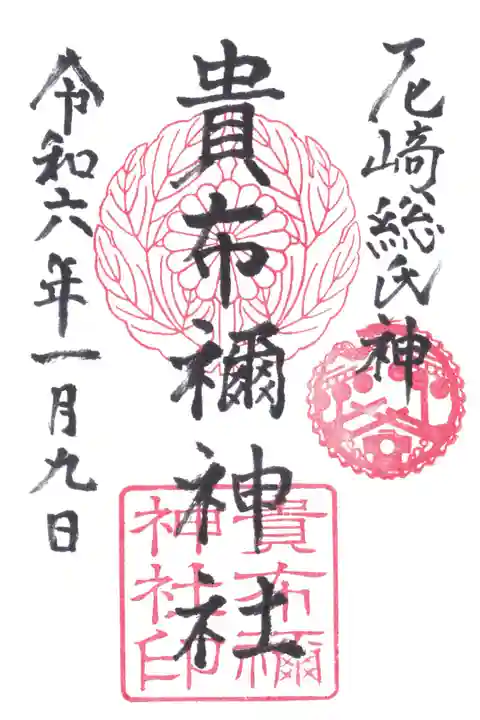 尼崎総氏神
貴布禰神社
令和六年一月九日
貴布禰
神社印